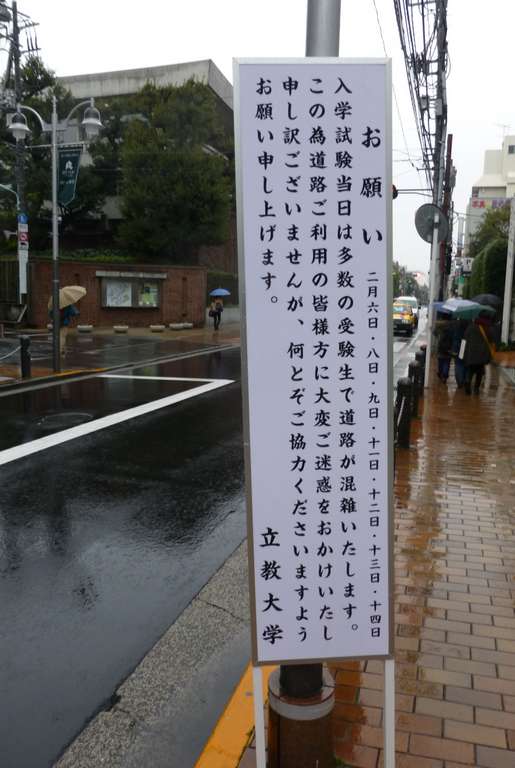 お願い
二月六日・八日・九日・十一日・十二日・十三日・十四日
入学試験当日は多数の受験生で道路が混雑いたします。
この為道路ご利用の皆様方に大変ご迷惑をおかけいたし
申し訳ございませんが、何とぞご協力くださいますよう
お願い申し上げます。
立教大学